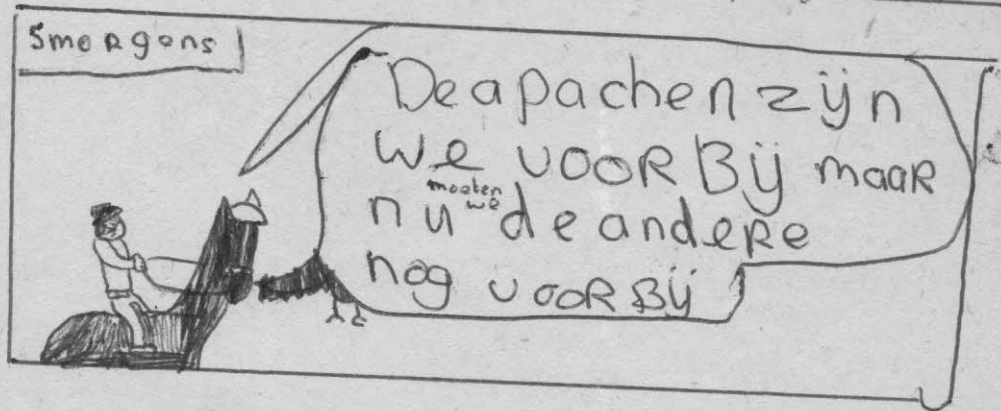 Smorgens
De apachen zijn
we vooR Bij maaR
nu moeten we de andeRe
nog vooRBij